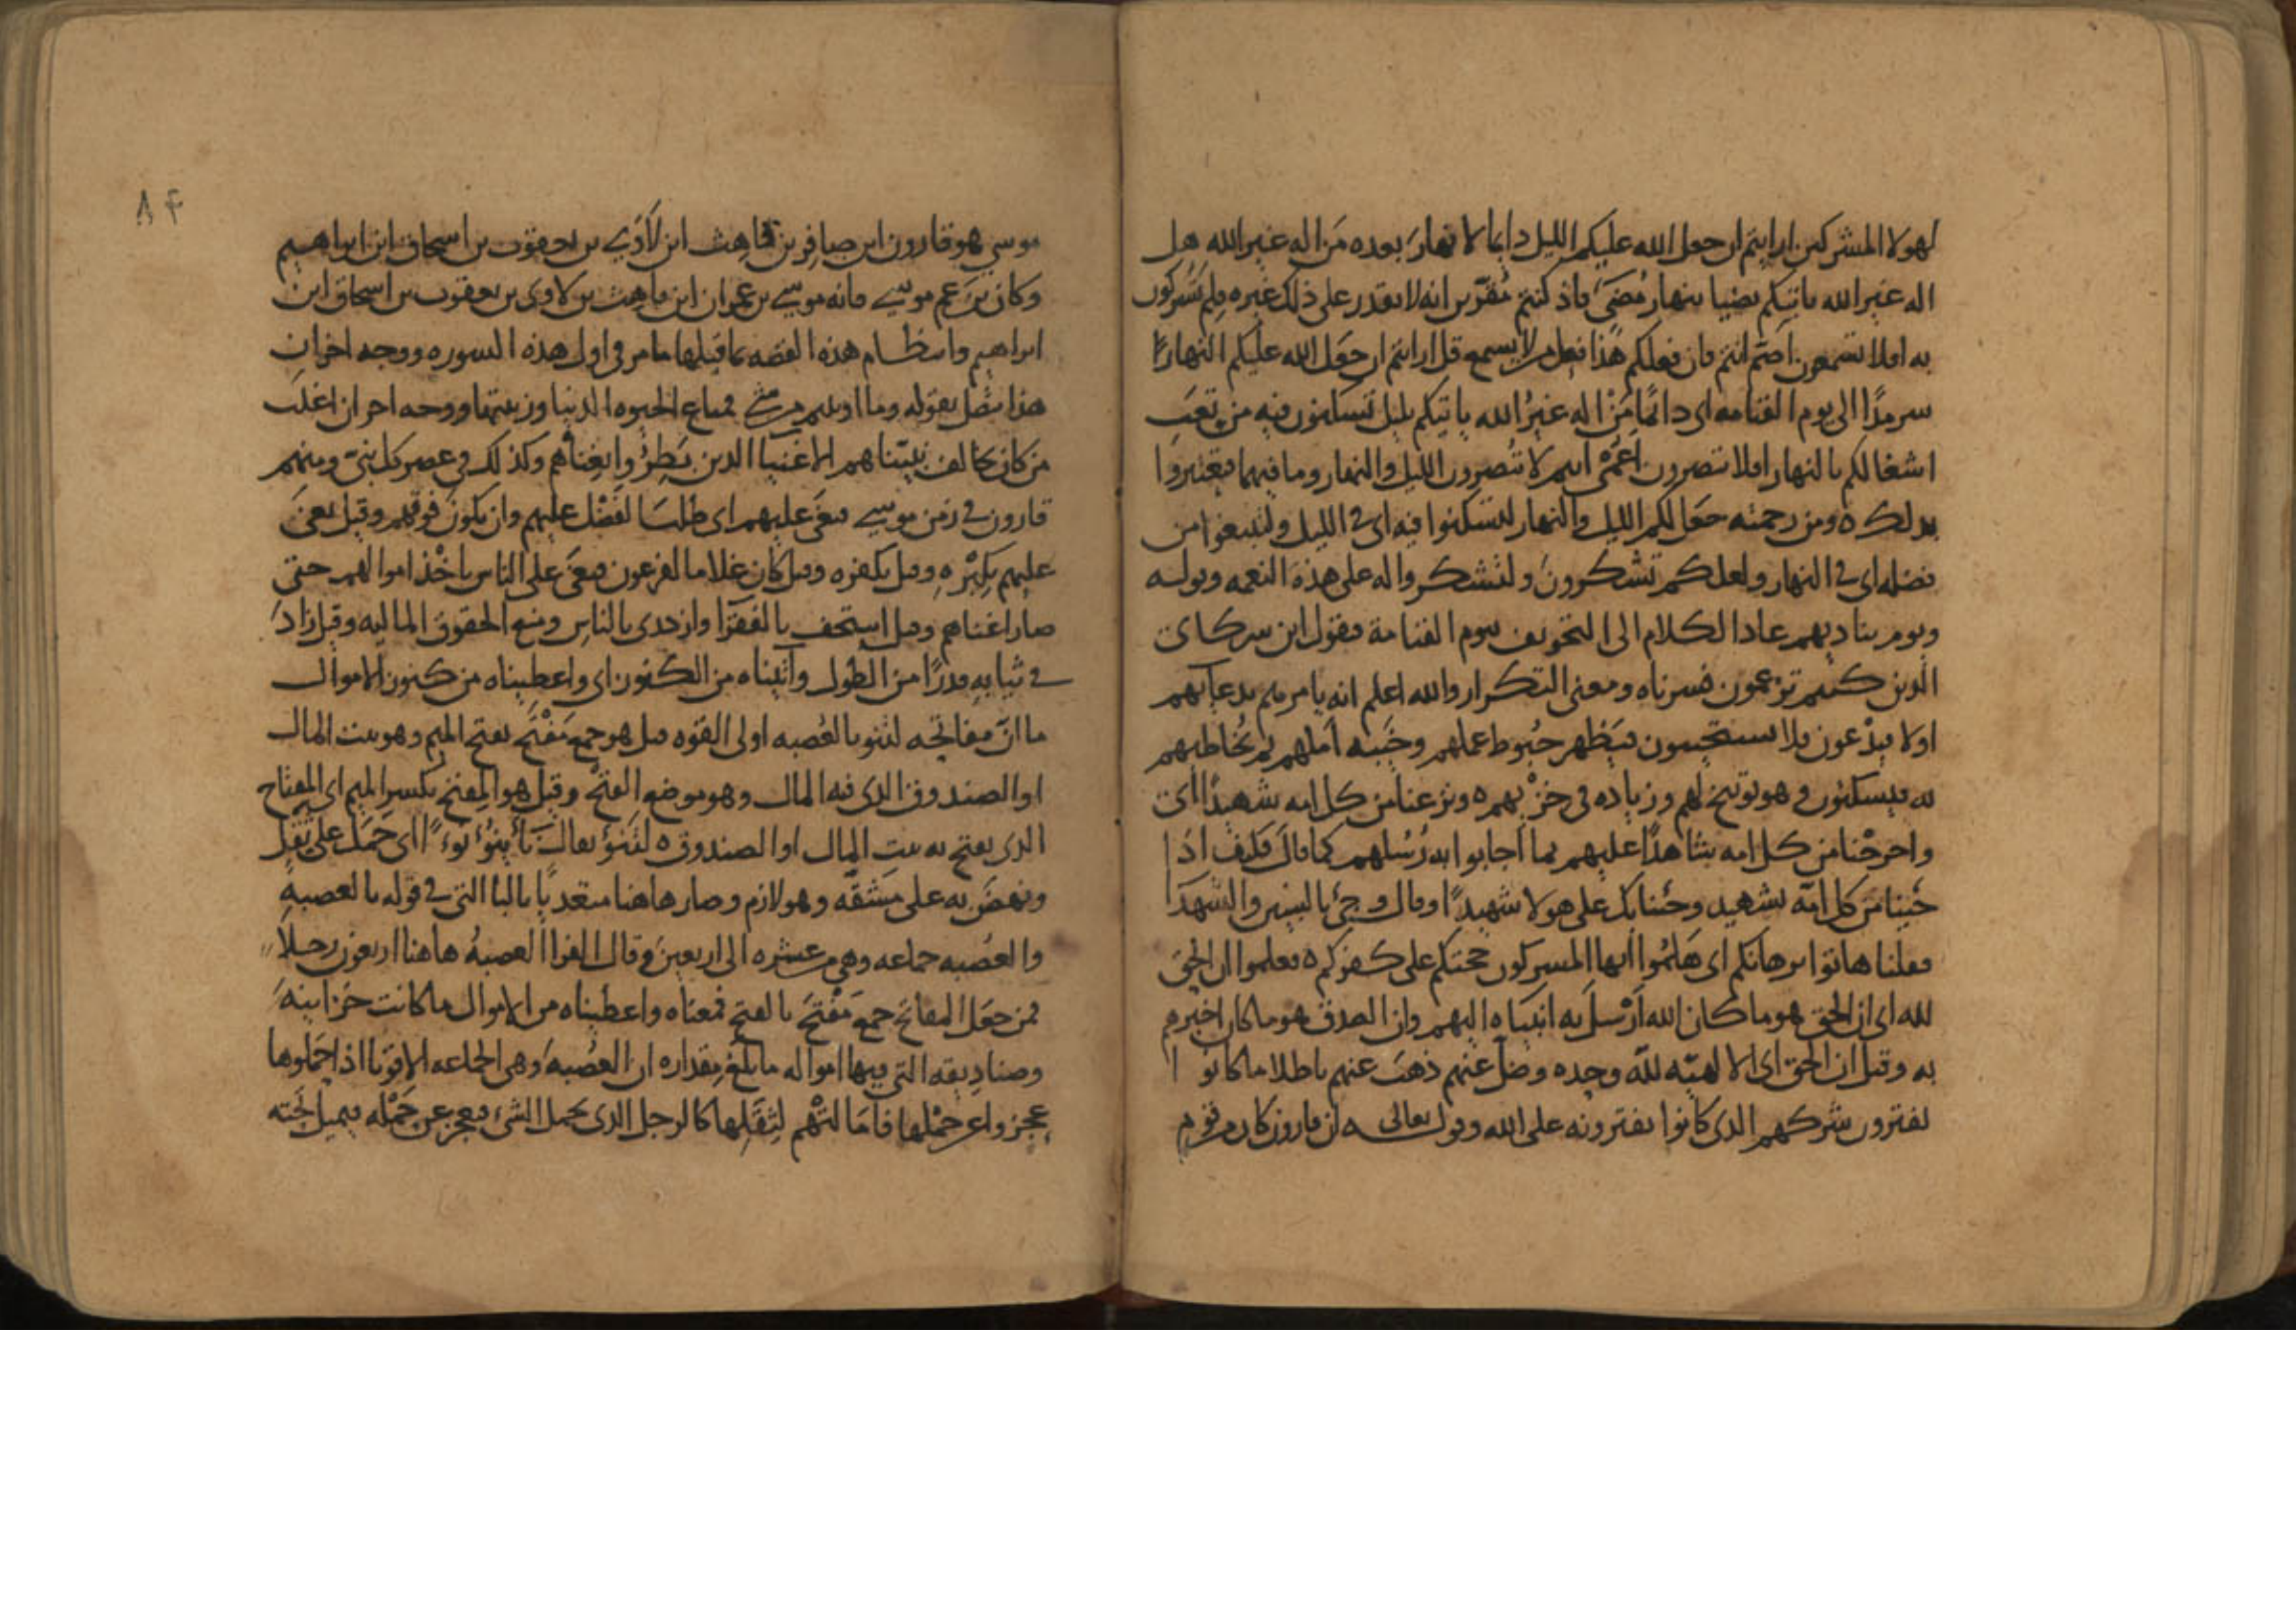 لهولا المشركين ارايتم ان جعل الله عليكم الليل دايما لا نهار بعده من اله غير الله هل
اله غير الله ياتيكم بضيا بنهار مضى فاذ كنتم مقرين انه لا يقدر على ذلك غيره فلم تشركون
به افلا تسمعون اصم انتم فان فعلكم هذا فعل من لا يسمع قل ارايتم ان جعل الله عليكم النهار
سرمدا الى يوم القيامه اى دائما من اله غير الله ياتيكم بليل تسكنون فيه من تعب
اشغالكم بالنهار افلا تبصرون اعمى انتم لا تبصرون الليل والنهار وما فيهما فتعتبروا
بذلك ومن رحمته جعل لكم الليل والنهار لتسكنوا فيه اى في الليل ولتبتغوا من
فضله اى في النهار ولعلكم تشكرون ولتشكروا له على هذه النعمه وقوله
ويوم يناديهم عاد الكلام الى التخويف بيوم القيامة فيقول اين شركائ
الذين كنتم تزعمون فسرناه ومعنى التكرار والله اعلم انه يامرهم بدعآيهم
اولا فيدعون فلا يستجيبون فيظهر حبوط عملهم وخيبه املهم ثم يخاطبهم
به فيسكتون وهو توبيخ لهم وزياده في خزيهم ونزعنا من كل امه شهيدا اى
واخرجنا من كل امه شاهدا عليهم بما اجابوا به رسلهم كما قال فكيف اذا
جينا من كل امه بشهيد وجئنا بك على هولا شهيدا وقال وجئ بالنبيين والشهدا
فقلنا هاتوا برهانكم اى هلموا ايها المشركون حجتكم على كفركم فعلموا ان الحق
لله اى ان الحق هو ما كان الله ارسل به انبياه اليهم وان الصدق هو ما كان اخبرهم
به وقيل ان الحق اى الالهيه لله وحده وضل عنهم ذهب عنهم باطلا ما كانوا
يفترون بشركهم الذى كانوا يفترونه على الله وقوله تعالى ان قارون كان من قوم
٨٤
موسي هو قارون ابن صافر بن قاهث ابن لاوي بن يعقوب بن اسحاق ابن ابراهيم
وكان بن عم موسي فانه موسي بن عمران ابن قاهث بن لاوى بن يعقوب بن اسحاق ابن
ابراهيم وانتظام هذه القصه بما قبلها ما مر في اول هذه السوره ووجه اخر ان
هذا متصل بقوله وما اوتيتم من شئ فمتاع الحيوه الدنيا وزينتها ووجه اخر ان اغلب
من كان يخالف نبيناهم الاغنيا الدين بطروا بغناهم وكذلك في عصر كل نبي ومنهم
قارون في زمن موسي فبغى عليهم اى طلب الفضل عليهم وان يكون فوقهم وقيل بغى
عليهم بكبره وقيل بكفره وقيل كان غلاما لفرعون فبغى على الناس باخذ اموالهم حتى
صار اغناهم وقيل استخف بالفقرا وازدرى بالناس ومنع الحقوق الماليه وقيل زاد
في ثيابه قدرا من الطول وآتيناه من الكنوز اى واعطيناه من كنوز الاموال
ما ان مفاتحه لتنو بالعصبه اولى القوه قيل هو جمع مفتح بفتح الميم وهو بيت المال
او الصندوق الذى فيه المال وهو موضع الفتح وقيل هو المفتح بكسر الميم اى المفتاح
الذى يفتح به بيت المال او الصندوق لتنؤ يقال ناء ينوء نوءا اى حمل على ثقل
ونهض به على مشقه وهو لازم وصار هاهنا متعديا بالبا التى في قوله بالعصبه
والعصبه جماعه وهي من عشره الى اربعين وقال الفرا العصبه هاهنا اربعون رجلا
فمن جعل المفاتح جمع مفتح بالفتح فمعناه واعطيناه من الاموال ما كانت خزاينه
وصناديقه التى فيها امواله ما بلغ مقداره ان العصبه وهى الجماعه الاقويا اذا حملوها
عجزوا عن حملها فامالتهم لثقلها كالرجل الذى يحمل الشئ فيعجز عن حمله فيميل تحته